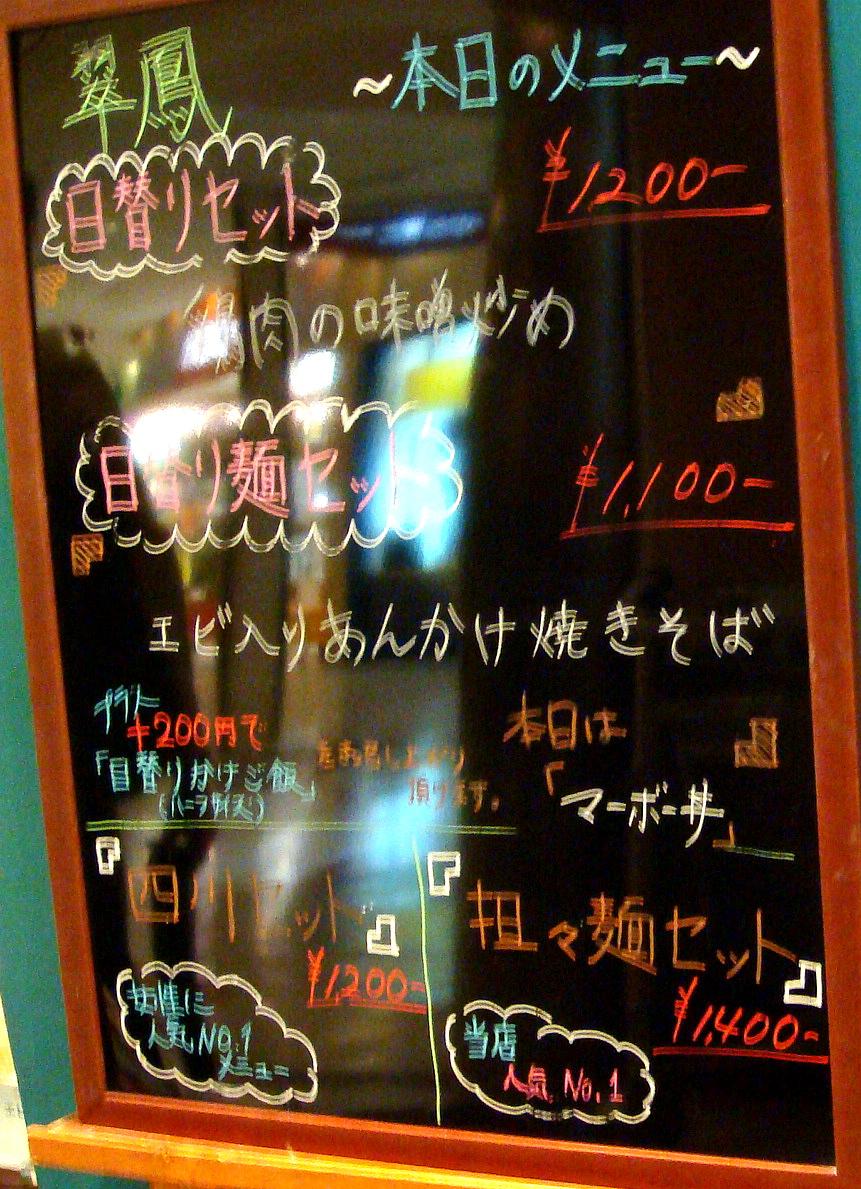 翠鳳
～本日のメニュー～
日替りセット
¥1200-
鶏肉の味噌炒め
日替り麺セット
¥1,100-
エビ入りあんかけ焼きそば
プラス
+200円で
「日替りかけご飯」
をお召し上がり
頂けます。
本日は
「マーボー丼」
『四川セット』
¥1,200-
女性に
人気NO.1
メニュー
『担々麺セット』
¥1,400-
当店
人気 No.1